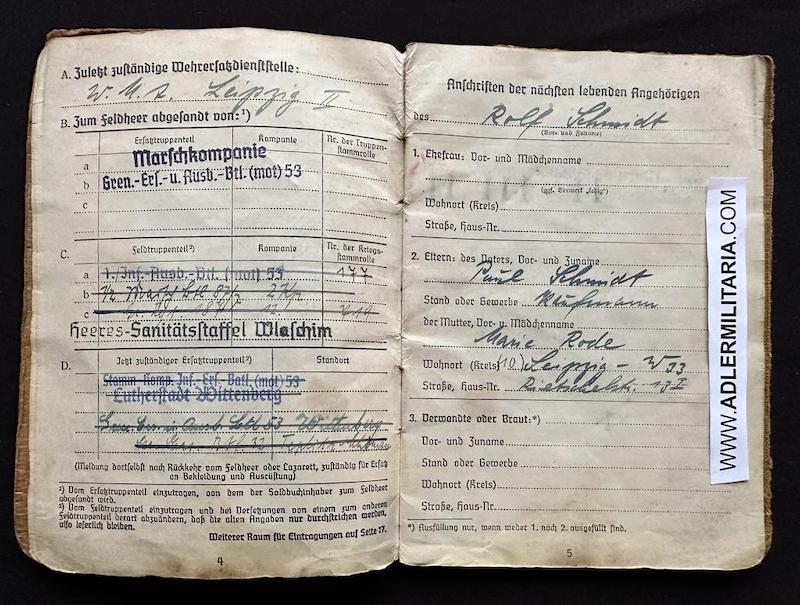 A. Zuletzt zuständige Wehrersatzdienststelle:
W.M.A. Leipzig II
B. Zum Feldheer abgesandt von:¹)
Ersatztruppenteil Kompanie Nr. der Truppenstammrolle
a Marschkompanie
b Gren.-Ers.- u. Ausb.-Btl. (mot) 53
c
C. Feldtruppenteil²) Kompanie Nr. der Kriegsstammrolle
a 1./Inf.-Ausb.-Btl. (mot) 53 177
b
c
Heeres-Sanitätsstaffel Wlaschim
D. Jetzt zuständiger Ersatztruppenteil²) Standort
Stamm-Komp. Inf.-Ers.-Batl. (mot) 53
Lutherstadt Wittenberg
53 Wittenberg
(Meldung dortselbst nach Rückkehr vom Feldheer oder Lazarett, zuständig für Ersatz
an Bekleidung und Ausrüstung)
¹) Vom Ersatztruppenteil einzutragen, von dem der Soldbuchinhaber zum Feldheer
abgesandt wird.
²) Vom Feldtruppenteil einzutragen und bei Versetzungen von einem zum anderen
Feldtruppenteil derart abzuändern, daß die alten Angaben nur durchstrichen werden,
also leserlich bleiben.
Weiterer Raum für Eintragungen auf Seite 17.
4
Anschriften der nächsten lebenden Angehörigen
des Rolf Schmidt
(Vor- und Zuname)
1. Ehefrau: Vor- und Mädchenname
(ggf. Vermerk „ledig")
Wohnort (Kreis)
Straße, Haus-Nr.
2. Eltern: des Vaters, Vor- und Zuname
Paul Schmidt
Stand oder Gewerbe Kaufmann
der Mutter, Vor- u. Mädchenname
Marie Rode
Wohnort (Kreis) (10) Leipzig - W 33
Straße, Haus-Nr. Rietschelstr. 13 I
3. Verwandte oder Braut:*)
Vor- und Zuname
Stand oder Gewerbe
Wohnort (Kreis)
Straße, Haus-Nr.
*) Ausfüllung nur, wenn weder 1. noch 2. ausgefüllt sind.
5
WWW.ADLERMILITARIA.COM